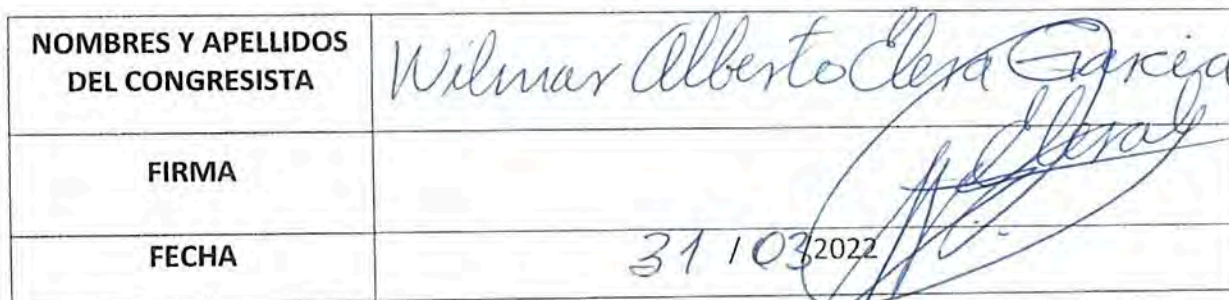 NOMBRES Y APELLIDOS
DEL CONGRESISTA
Wilmar Alberto Elera Garcia
FIRMA
Elera
FECHA
31 / 03 2022